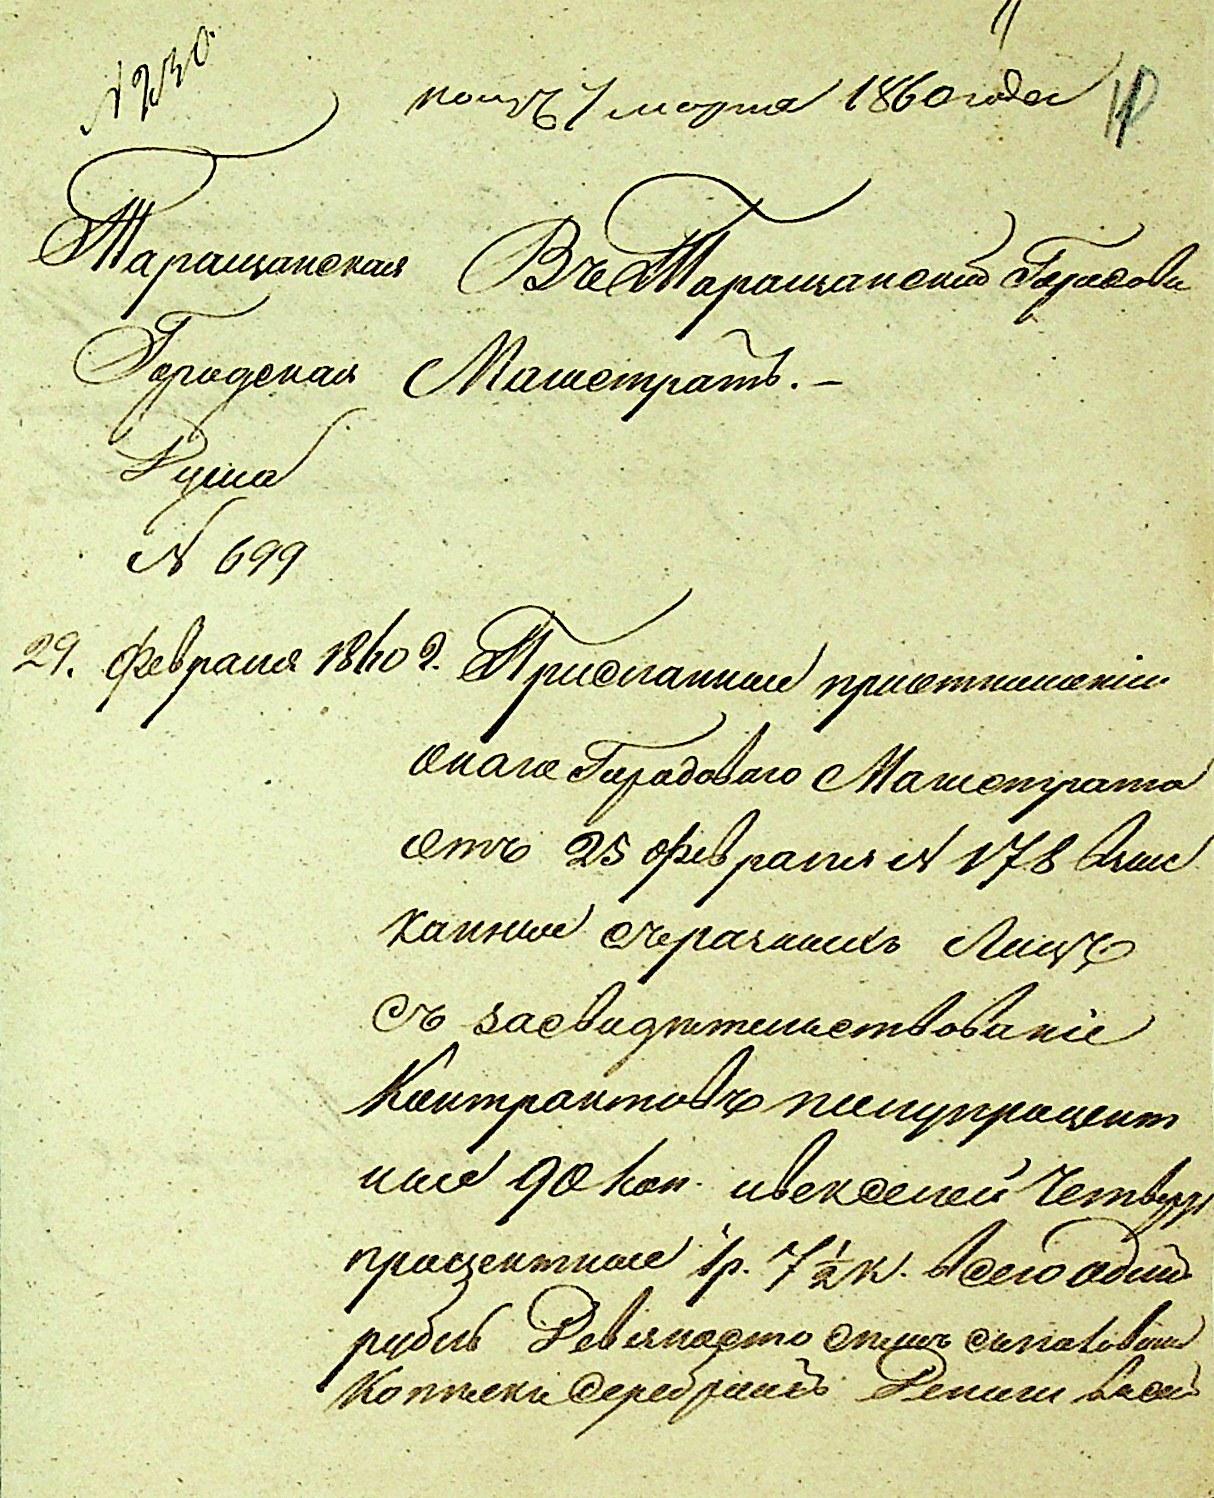 N 230.
получ. 1 марта 1860 года
Таращанская
Городская
Дума
N 699
29. февраля 1860 г.
Въ Таращанский Городовы
Магистратъ. —
Присланные приотношении
онаго Городоваго Магистрата
отъ 25 февраля N 178 взыс
канные съразныхъ Лицъ
съ засвидѣтельствование
Контрактовъ полупроцент
ные 90 коп. ивекселей Четверт
процентные 1 р. 7 ½ к. всего одинъ
рубль Девяносто семь споловиною
Копѣекъ Серебромъ Деньги